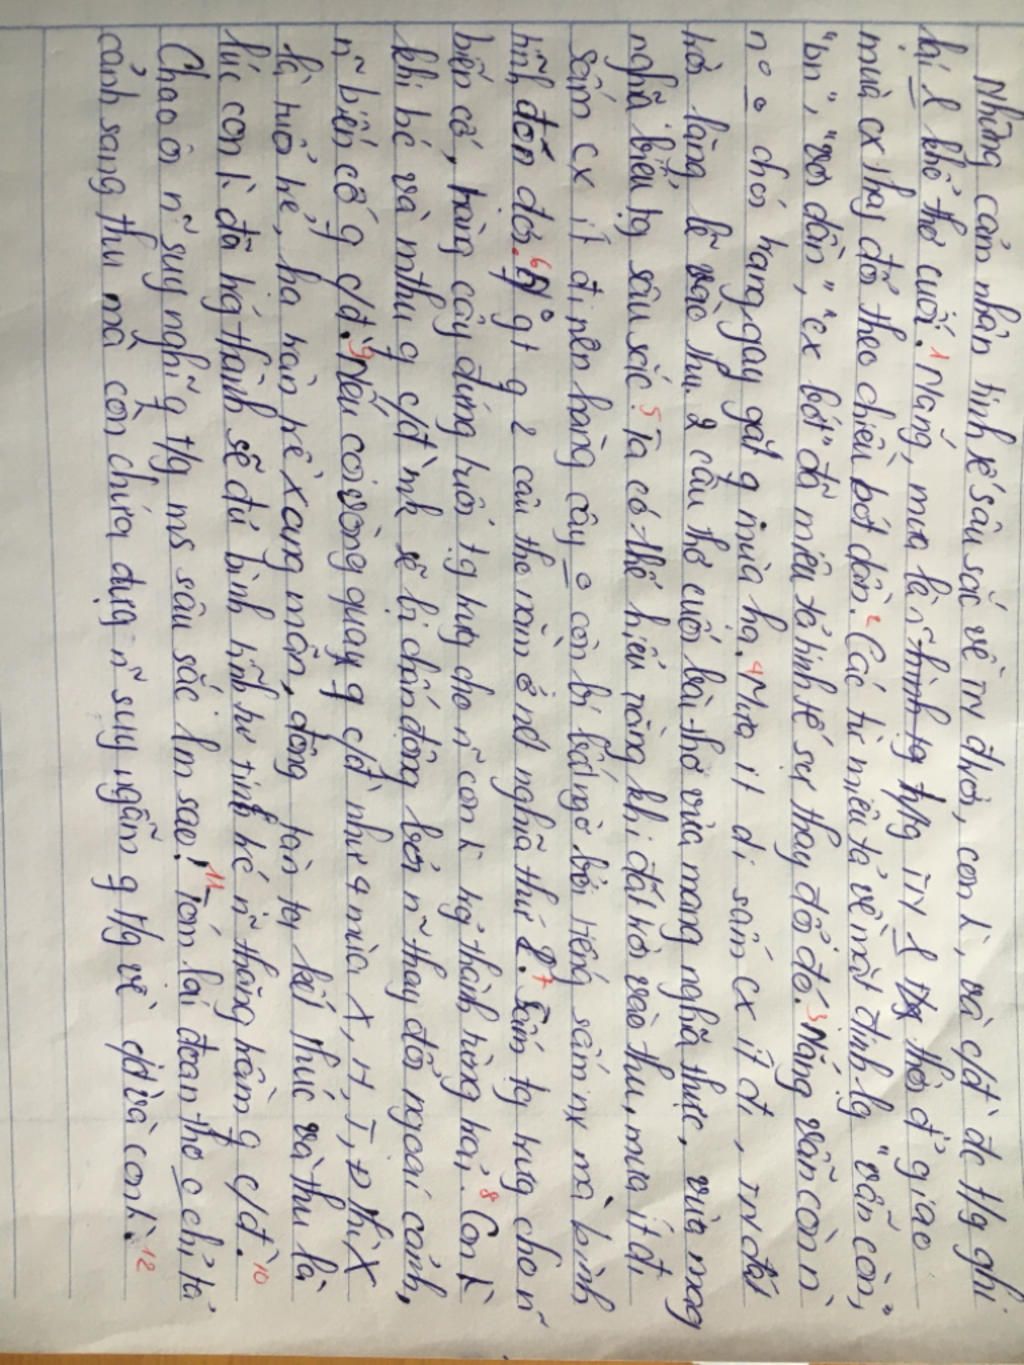 Những cảm nhận tinh tế sâu sắc về TN đươi, con k, và c/đ đc t/g ghi
lại l khổ thơ cuối.1 Nắng, mưa là n~ t/g TN l thời đ' giao
mùa cx thay đổi theo chiều bớt dần.2 Các từ miêu tả về mặt định lg "vẫn còn,"
"bn", "vơi dần", "cx bớt" đã miêu tả tinh tế sự thay đổi đó.3 Nắng vẫn còn n`
n o chói rang, gay gắt g mùa hạ.4 Mưa ít đi sấm cx ít đi, TN đất
trời lặng lẽ vào thu. 2 câu thơ cuối bài thơ vừa mang nghĩa thực, vừa mag
nghĩa biểu tg sâu sắc.5 Ta có thể hiểu rằng khi đất trời vào thu, mưa ít đi
sấm cx ít đi nên hàng cây o còn bị bất ngờ bởi tiếng sấm nx mà bình
tĩnh đón đợi.6 g t g 2 câu thơ nằm ở nd nghĩa thứ 2.7 Sấm tg trưg cho n~
biến cố, hàng cây đứng tuổi tg trưg cho n~ con k trg thành từng trải.8 Con k
khi bé và mthu g c/đ mk sẽ bị chấn động bởi n~ thay đổi ngoại cảnh,
n~ biến cố g c/đ.9 Nếu coi vòng quay g c/đ như 4 mùa X, H, T, Đ thì X
là tuổi trẻ, hạ tràn trề xang mãn, đông tàn tạ kết thúc và thu là
lúc con k đã trg thành sẽ đủ bình tĩnh trc n~ thăng trầm g c/đ.10
Chao ôi n~ suy nghĩ g t/g ms sâu sắc lm sao!11 Tóm lại đoạn thơ o chỉ tả
cảnh sang thu mà còn chứa đựng n~ suy ngẫm g t/g về c/đ và con k.12